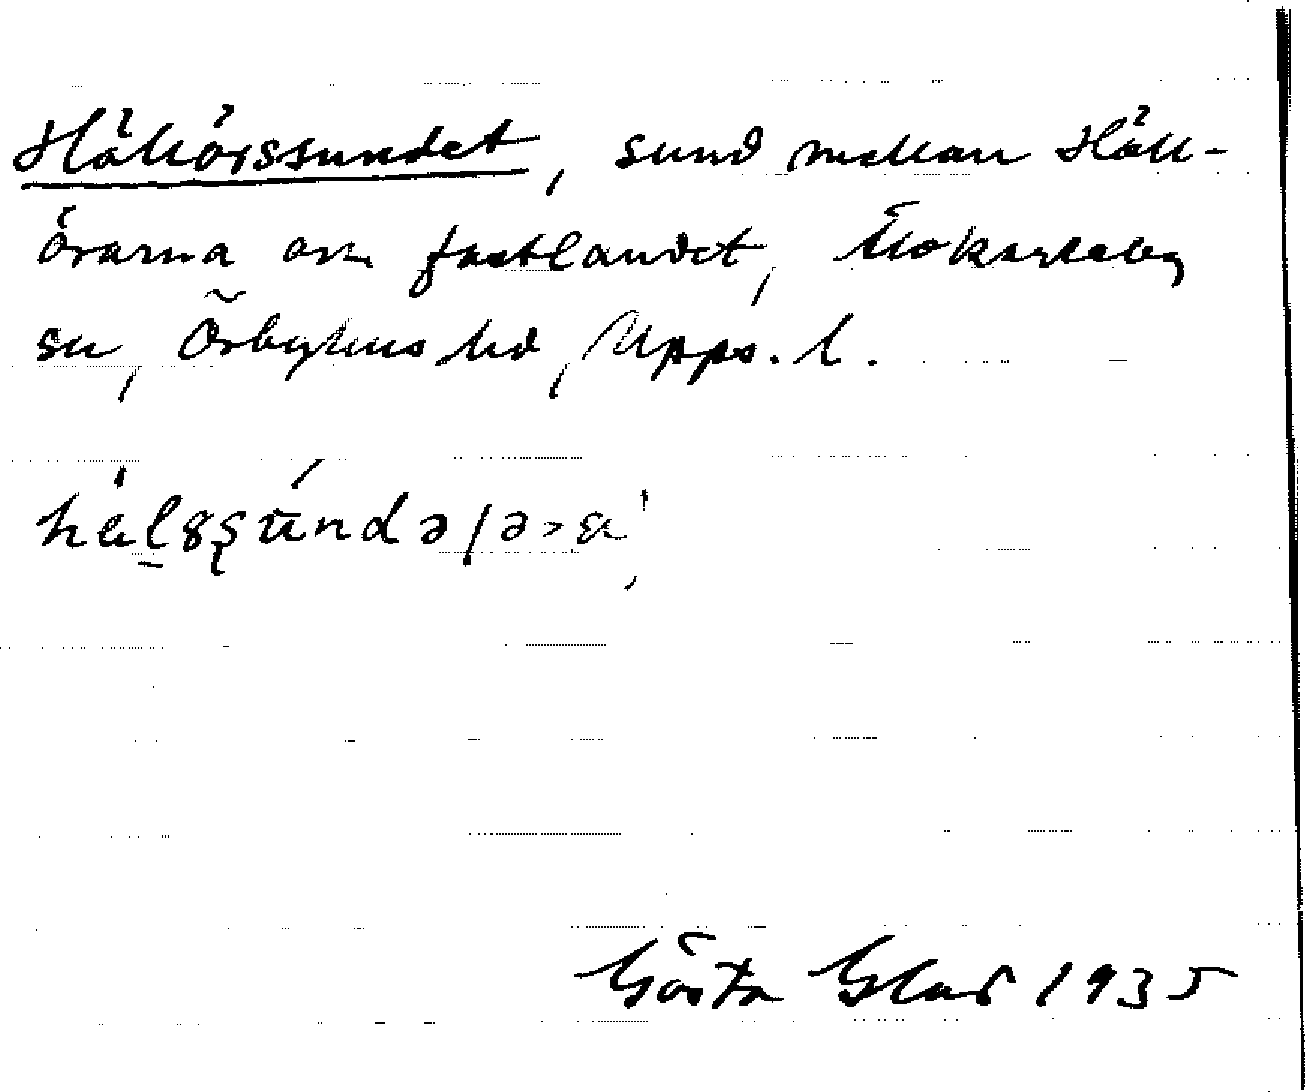 Hällörssundet, sund mellan Häll-
örarna och fastlandet, Älvkarleby
sn, Örbyhus hd, Upps. l.
Gösta Glad 1935